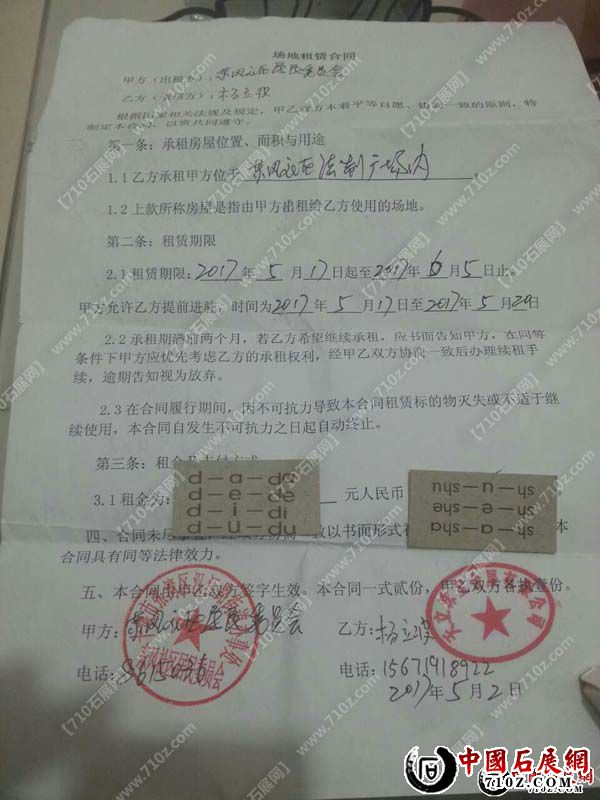 场地租赁合同
甲方（出租方）：东风社区居民委员会
乙方（承租方）：杨立波
根据国家相关法规及规定，甲乙双方本着平等自愿、协商一致的原则，特
制定本合同，以资共同遵守。
第一条：承租房屋位置、面积与用途
1.1 乙方承租甲方位于 东风社区法制广场内 。
1.2 上款所称房屋是指由甲方出租给乙方使用的场地。
第二条：租赁期限
2.1 租赁期限：2017年 5 月 17日起至2017年 6月 5日止。
甲方允许乙方提前进驻，时间为2017年 5 月 17日至 2017年 5月 29日
2.2 承租期满前两个月，若乙方希望继续承租，应书面告知甲方，在同等
条件下甲方应优先考虑乙方的承租权利，经甲乙双方协商一致后办理续租手
续，逾期告知视为放弃。
2.3 在合同履行期间，因不可抗力导致本合同租赁标的物灭失或不适于继
续使用，本合同自发生不可抗力之日起自动终止。
第三条：租金及支付方式
3.1 租金为： 元人民币 。
d—a—da
d—e—de
d—i—di
d—u—du
sh—a—sha
sh—e—she
sh—u—shu
四、合同未尽 致以书面形式 本
合同具有同等法律效力。
五、本合同由甲乙双方签字生效。本合同一式贰份，甲乙双方各执壹份。
甲方：东风社区居民委员会
乙方：杨立波
电话：
电话：15671918922
2017年 5 月 2 日
【710石展网】www.710z.com
中國石展網
710z.COM